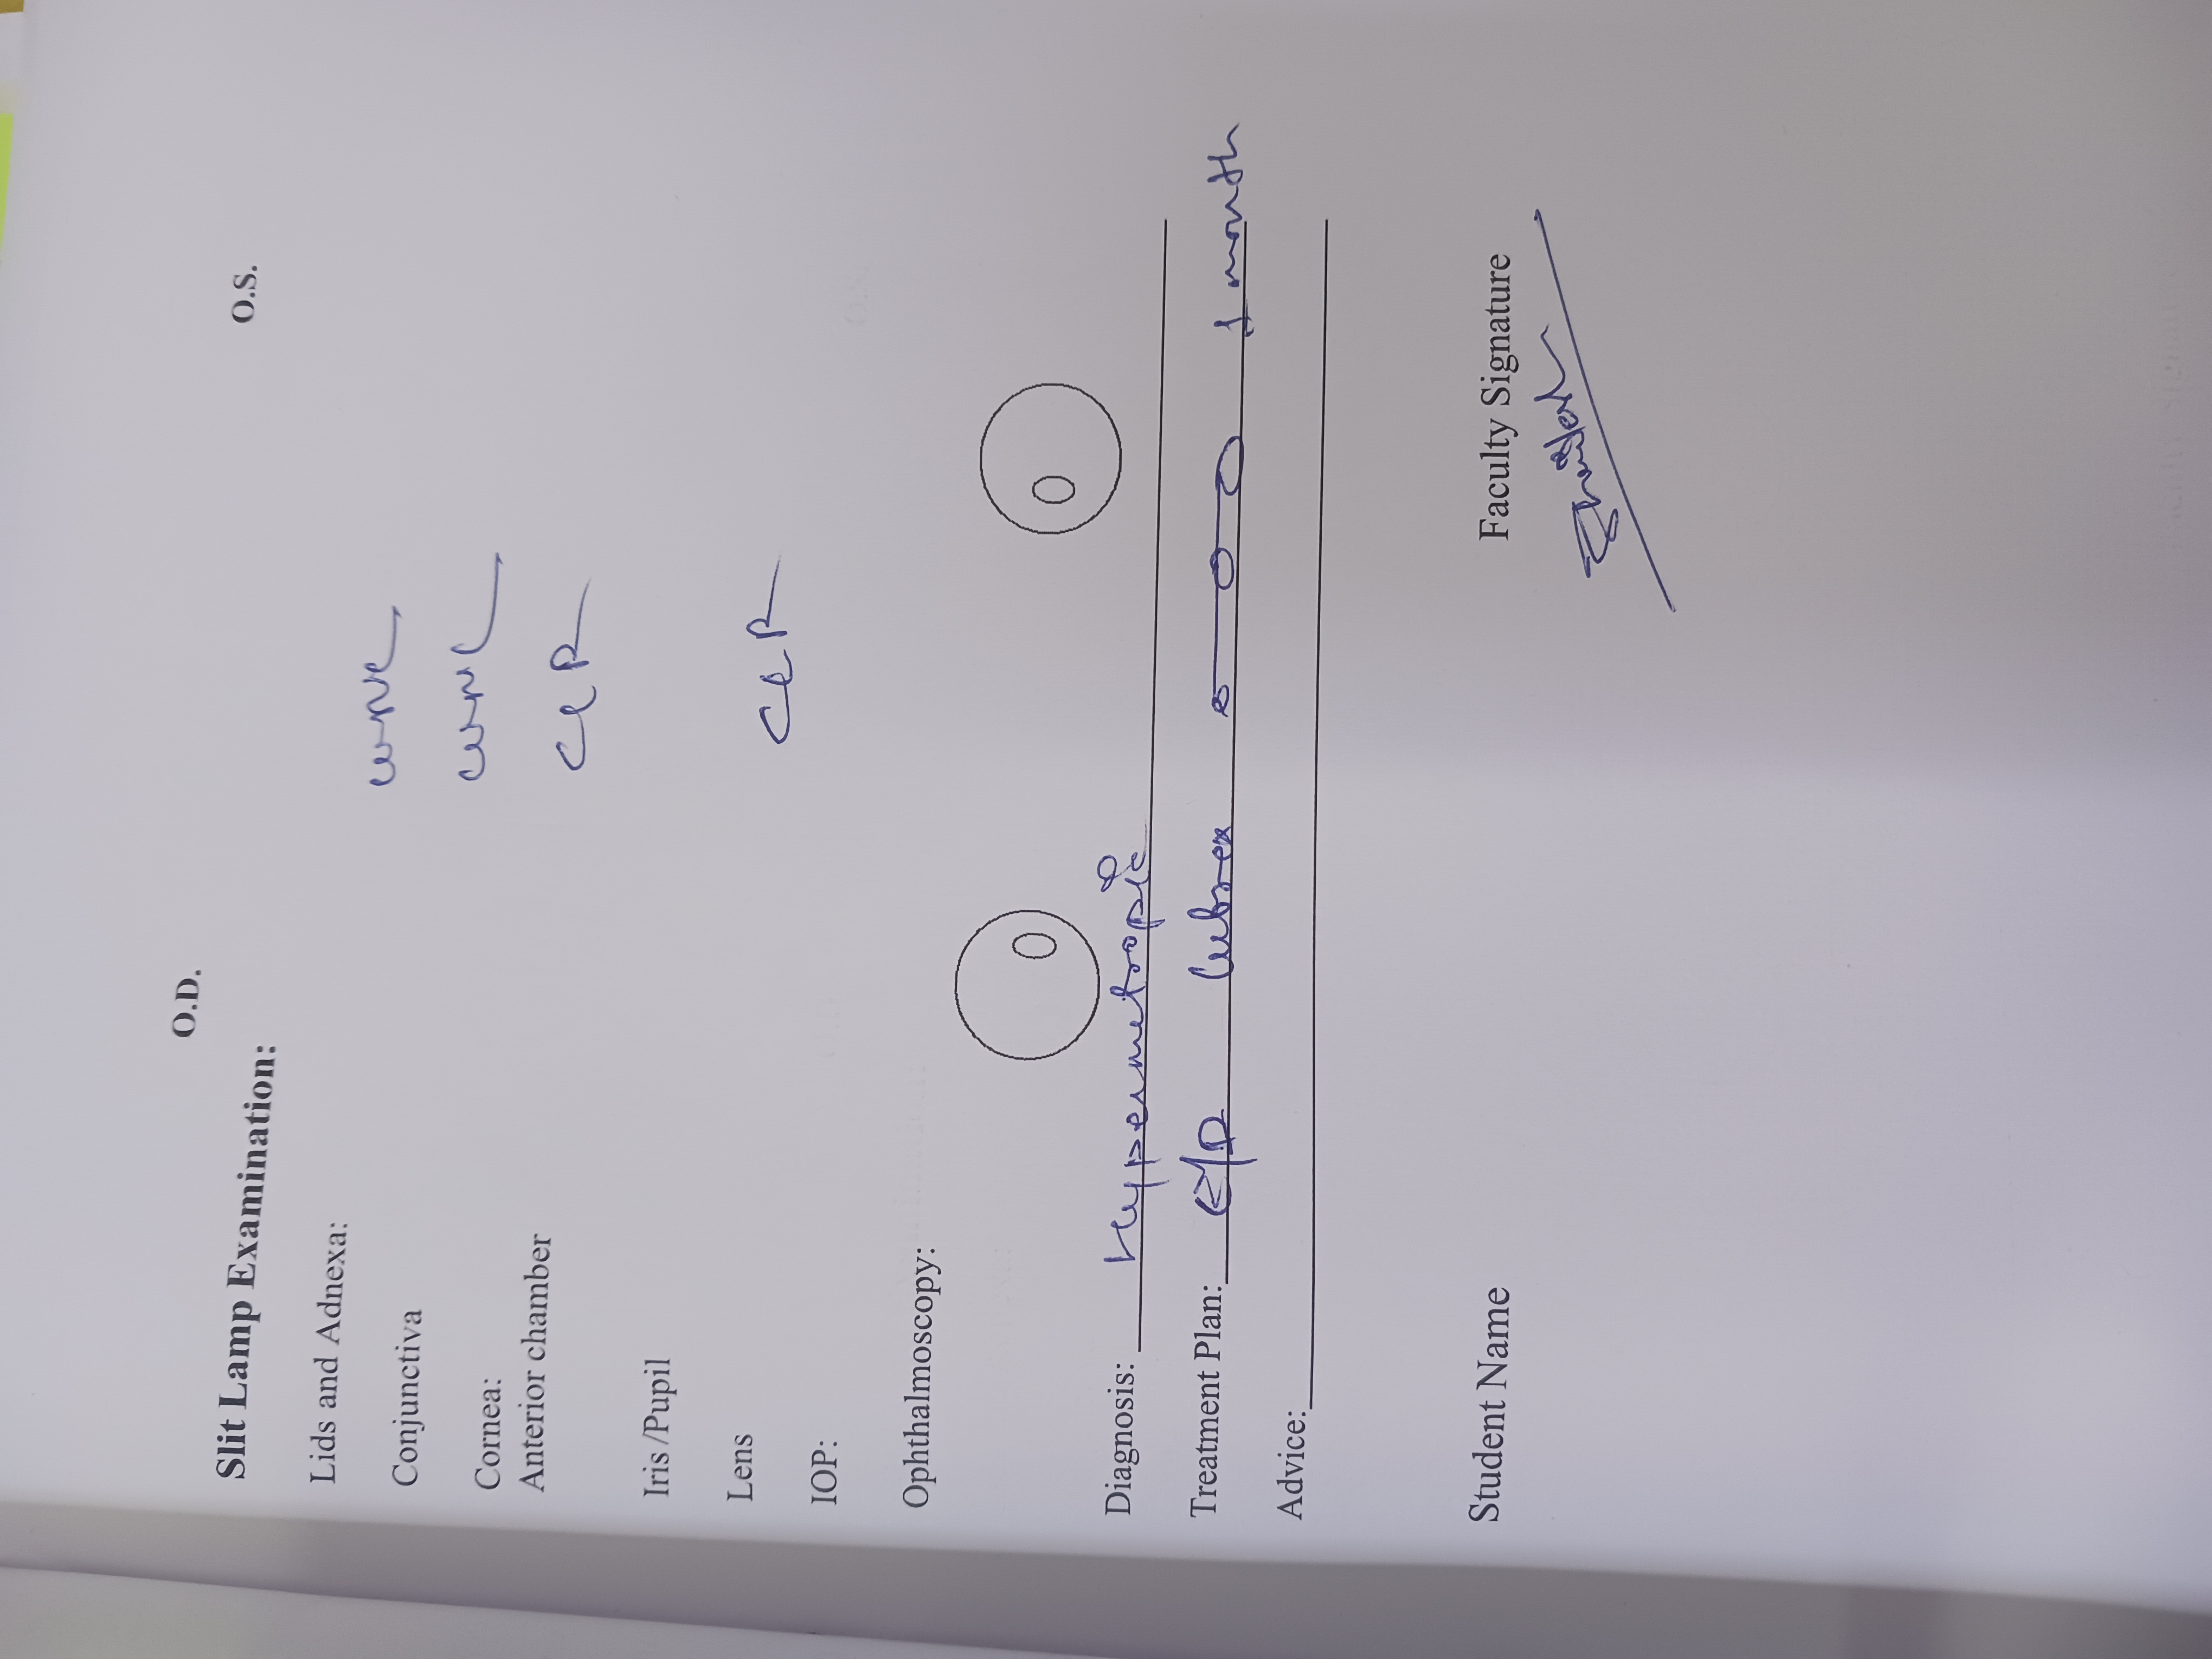 O.D. O.S.
Slit Lamp Examination:
Lids and Adnexa: WNL
Conjunctiva WNL
Cornea:
Anterior chamber CLR
Iris /Pupil
Lens CLR
IOP:
Ophthalmoscopy:
Diagnosis: Hypermetropic
Treatment Plan: E/D Lubrex 1 month
Advice:
Student Name Faculty Signature